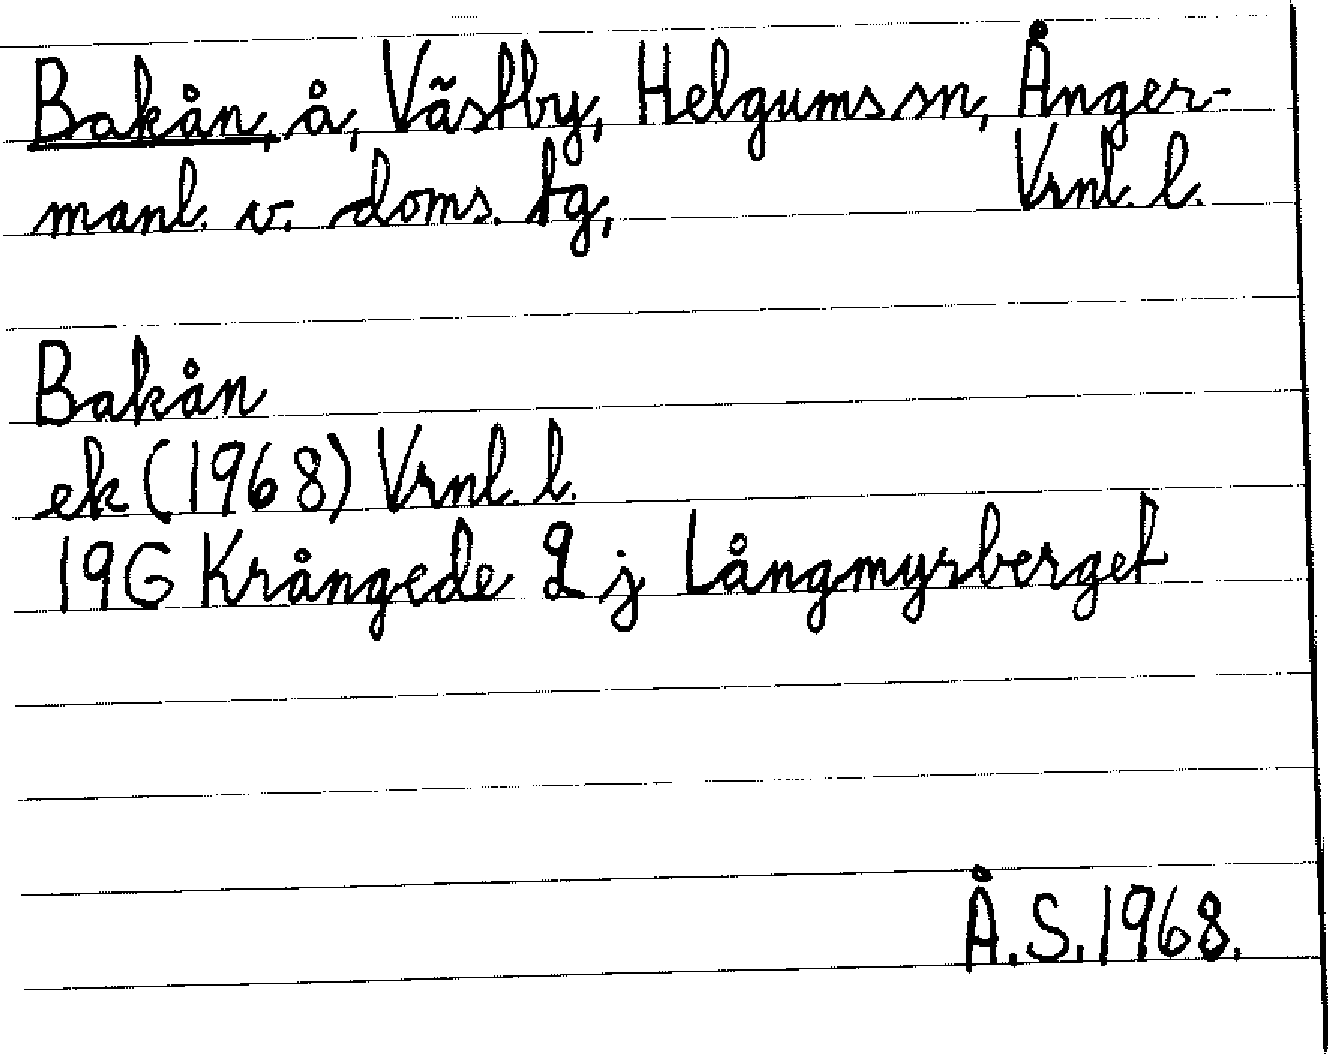 Bakån, å, Västby, Helgums sn, Ånger-
manl. v. doms. tg, Vrnl. l.
Bakån
ek (1968) Vrnl. l.
19G Krångede 2 j Långmyrberget
Å.S. 1968.